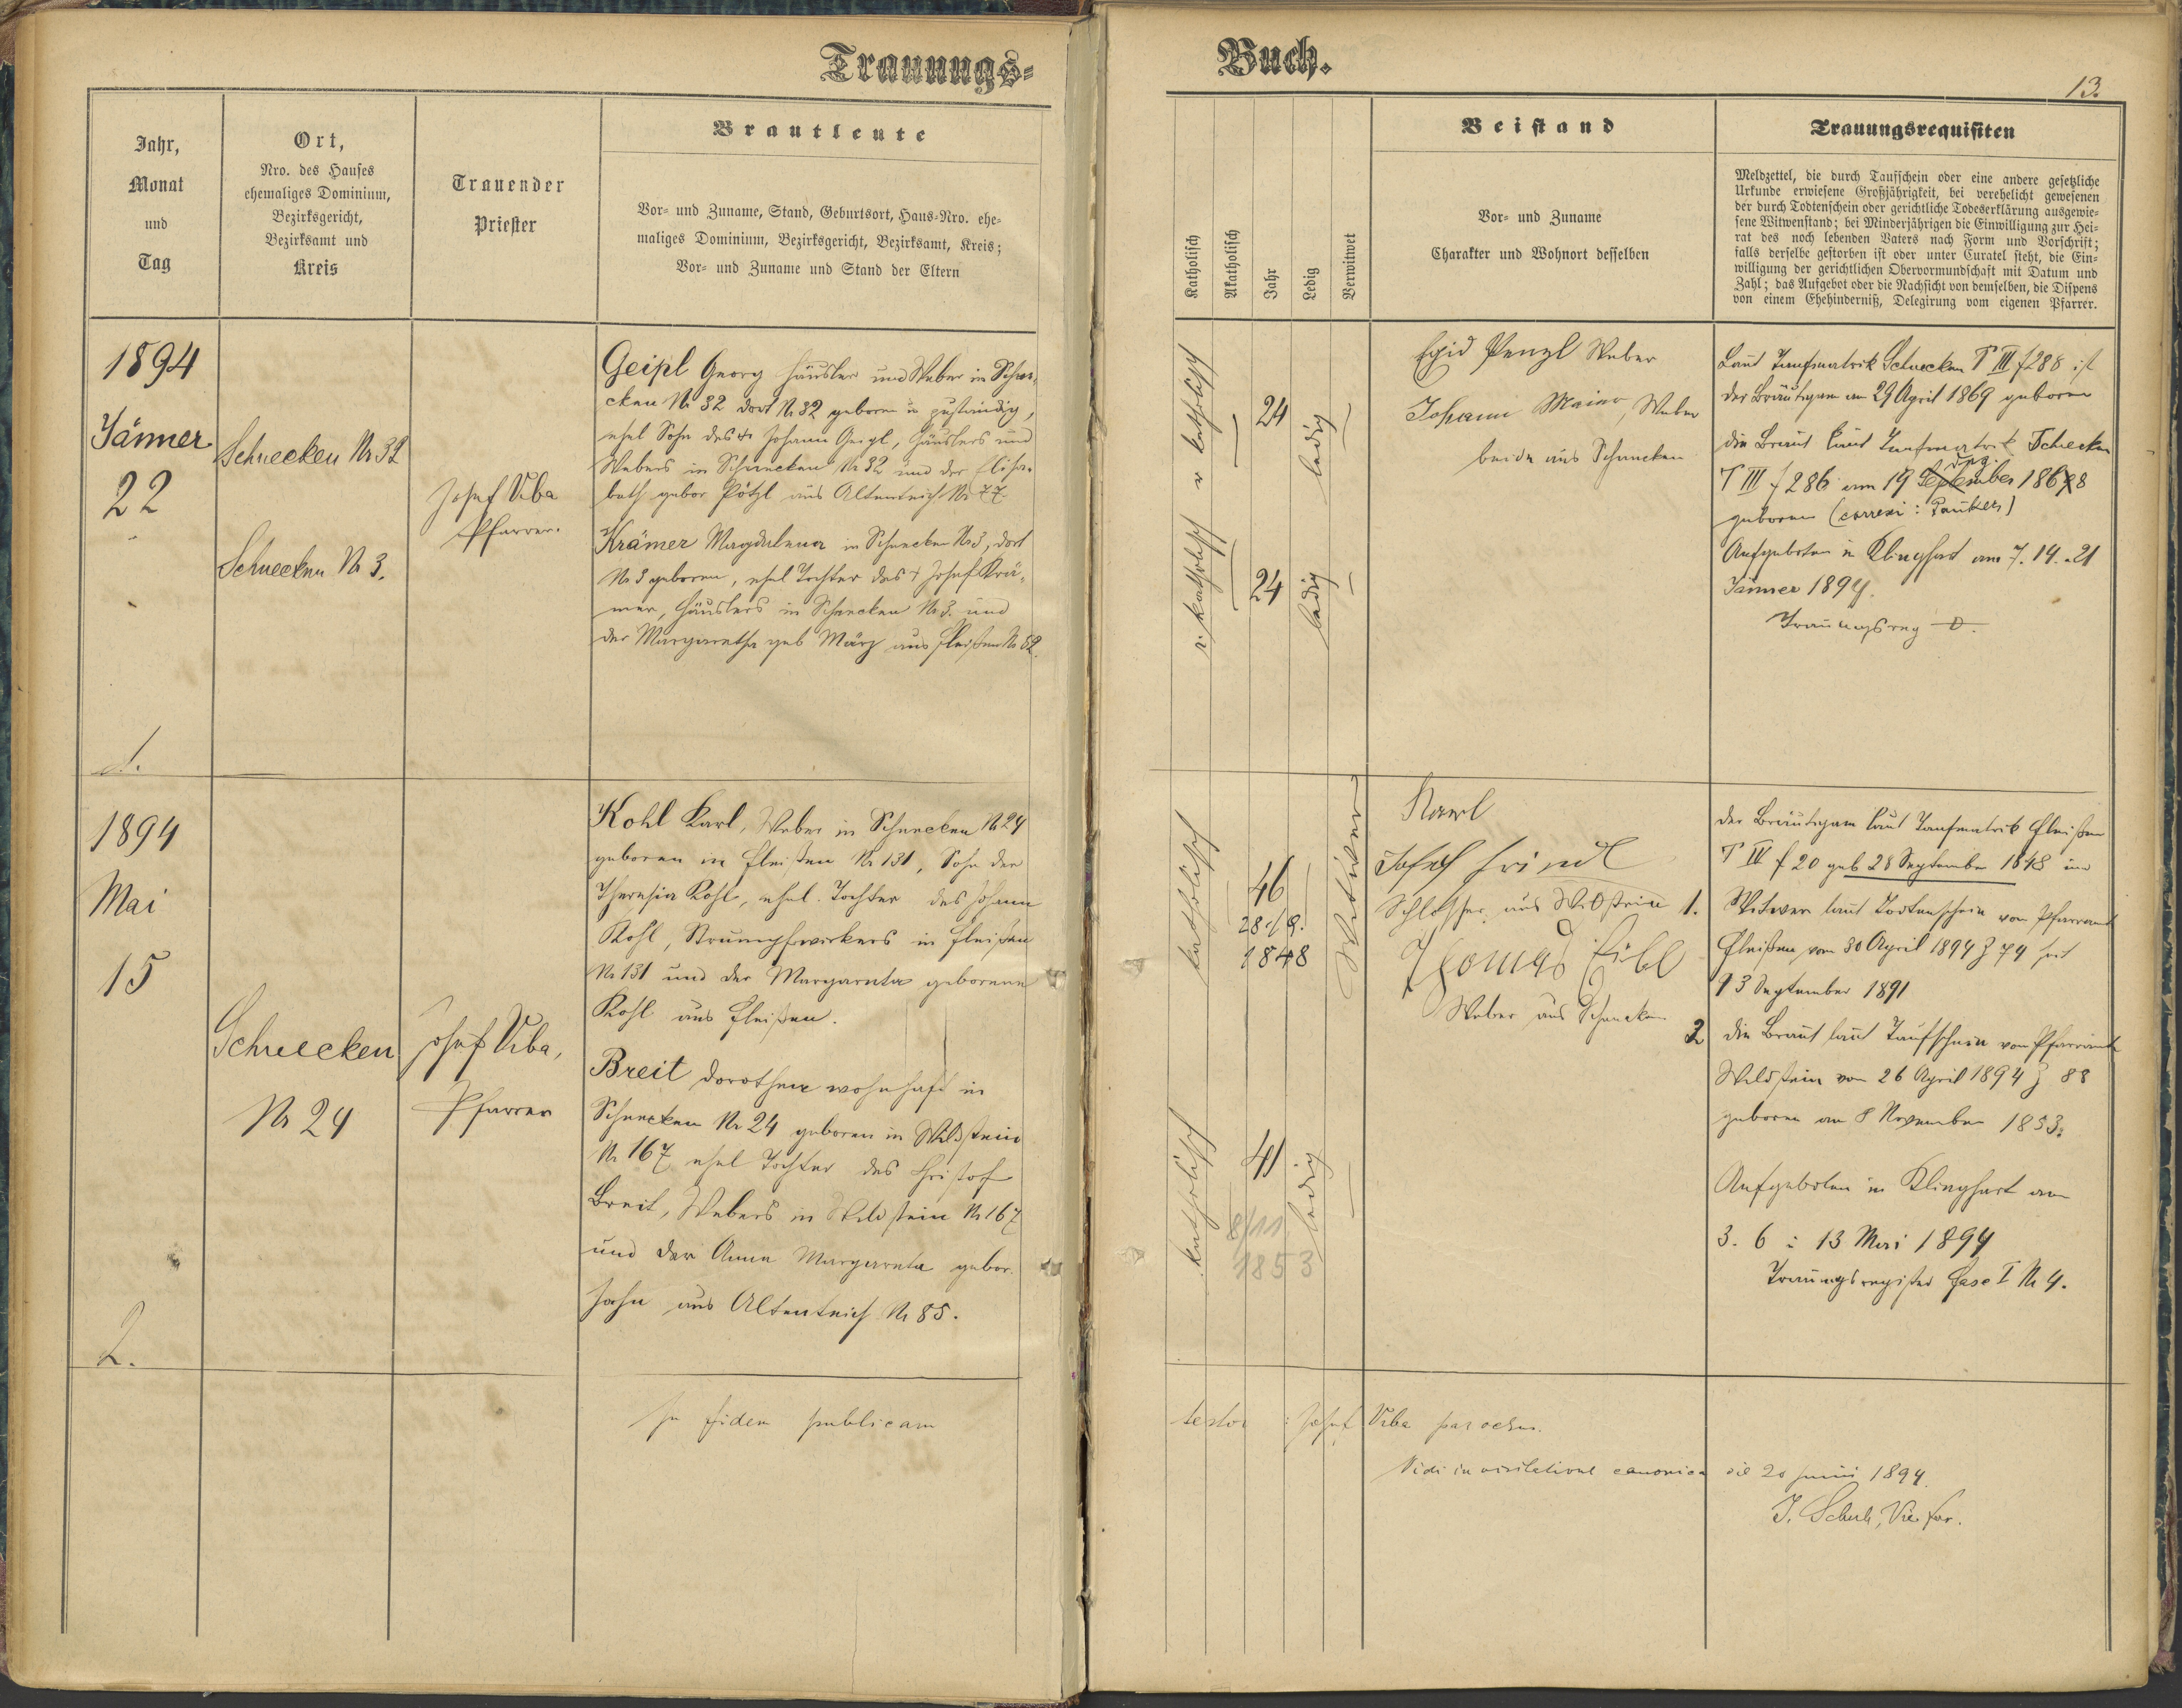 Trauungs=
Jahr,
Monat
und
Tag
Ort,
Nro. des Hauses
ehemaliges Dominium,
Bezirksgericht,
Bezirksamt und
Kreis
Trauender
Priester
Brautleute
Vor= und Zuname, Stand, Geburtsort, Haus=Nro. ehe=
maliges Dominium, Bezirksgericht, Bezirksamt, Kreis;
Vor= und Zuname und Stand der Eltern
1894
Jänner
22
Schnecken Nr 32
Schnecken Nr 3.
Josef Viba
Pfarrer.
Geipl Georg Häusler und Weber in Schne=
cken Nr 32 dort Nr 32 geboren u zuständig,
ehel Sohn des + Johann Geipl, Häuslers und
Webers in Schnecken Nr 32 und der Elisa=
beth gebor Pötzl aus Altenteich Nr 77.
Krämer Magdalena in Schnecken Nr 3, dort
Nr 3 geboren, ehel Tochter des + Josef Krä=
mer, Häuslers in Schnecken Nr 3. und
der Margaretha geb März aus Fleißen Nr 52.
1.
1894
Mai
15
Schnecken
Nr 24
Josef Viba,
Pfarrer
Kohl Karl, Weber in Schnecken Nr 24
geboren in Fleißen Nr 131, Sohn der
Theresia Kohl, ehel. Tochter des Johann
Kohl, Strumpfwirkers in Fleißen
Nr 131 und der Margareta geborene
Kohl aus Fleißen.
Breit Dorothea wohnhaft in
Schnecken Nr 24 geboren in Wildstein
Nr 167 ehel Tochter des Christof
Breit, Webers in Wildstein Nr 167
und der Anna Margareta gebor.
Hahn aus Altenteich Nr 85.
2.
In fidem publicam
Buch.
13.
Katholisch
Akatholisch
Jahr
Ledig
Verwitwet
Beistand
Vor= und Zuname
Charakter und Wohnort desselben
Trauungsrequisiten
Meldzettel, die durch Taufschein oder eine andere gesetzliche
Urkunde erwiesene Großjährigkeit, bei verehelicht gewesenen
der durch Todtenschein oder gerichtliche Todeserklärung ausgewie=
sene Witwenstand; bei Minderjährigen die Einwilligung zur Hei=
rat des noch lebenden Vaters nach Form und Vorschrift;
falls derselbe gestorben ist oder unter Curatel steht, die Ein=
willigung der gerichtlichen Obervormundschaft mit Datum und
Zahl; das Aufgebot oder die Nachsicht von demselben, die Dispens
von einem Ehehinderniß, Delegirung vom eigenen Pfarrer.
r katholisch
24
ledig
r. katholisch
24
ledig
Egid Penzl Weber
Johann Maier, Weber
beide aus Schnecken
Laut Taufmatrik Schnecken T III f 288 ist
der Bräutigam am 29 April 1869 geboren
die Braut laut Taufmatrik Schecken
T III f 286 am 19 September 1868
geboren (correxi:
Aufgeboten in Klinghart am 7. 14. u 21
Jänner 1894.
Trauungsreg
katholisch
46
28./9.
1848
Witwer
katholisch
41
8/11
1853
ledig
Karl
Josef
Schlosser aus Wildstein
Thomas Eibl
Weber aus Schnecken
der Bräutigam laut Taufmatrik Fleißen
T IV f 20 geb 28 September 1848 und
1. Witwer laut Todtenschein vom Pfarramt
Fleißen vom 30 April 1894 Z 74 seit
13 September 1891
2 die Braut laut Taufschein vom Pfarramt
Wildstein vom 26 April 1894 Z 88
geboren am 8 November 1853.
Aufgeboten in Klinghart am
3. 6 u 13 Mai 1894
Trauungsregister Fasc I Nr 4.
testor: Josef Viba parochus.
Vidi in visitatione canonica die 20 Junii 1894.